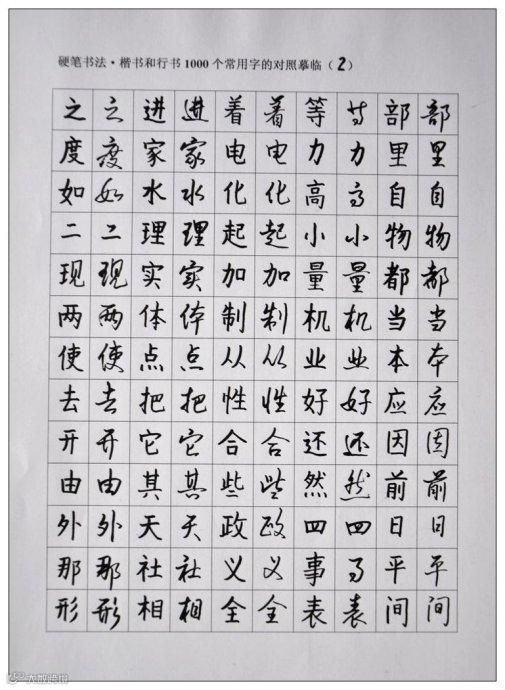 硬笔书法·楷书和行书1000个常用字的对照摹临（2）
之之进进着着等等部部
度度家家电电力力里里
如如水水化化高高自自
二二理理起起小小物物
现现实实加加量量都都
两两体体制制机机当当
使使点点从从业业本本
去去把把性性好好应应
开开它它合合还还因因
由由其其些些然然前前
外外天天政政四四日日
那那社社义义事事平平
形形相相全全表表间间